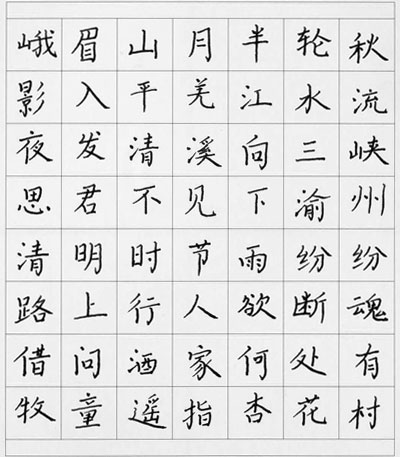 峨眉山月半轮秋
影入平羌江水流
夜发清溪向三峡
思君不见下渝州
清明时节雨纷纷
路上行人欲断魂
借问酒家何处有
牧童遥指杏花村